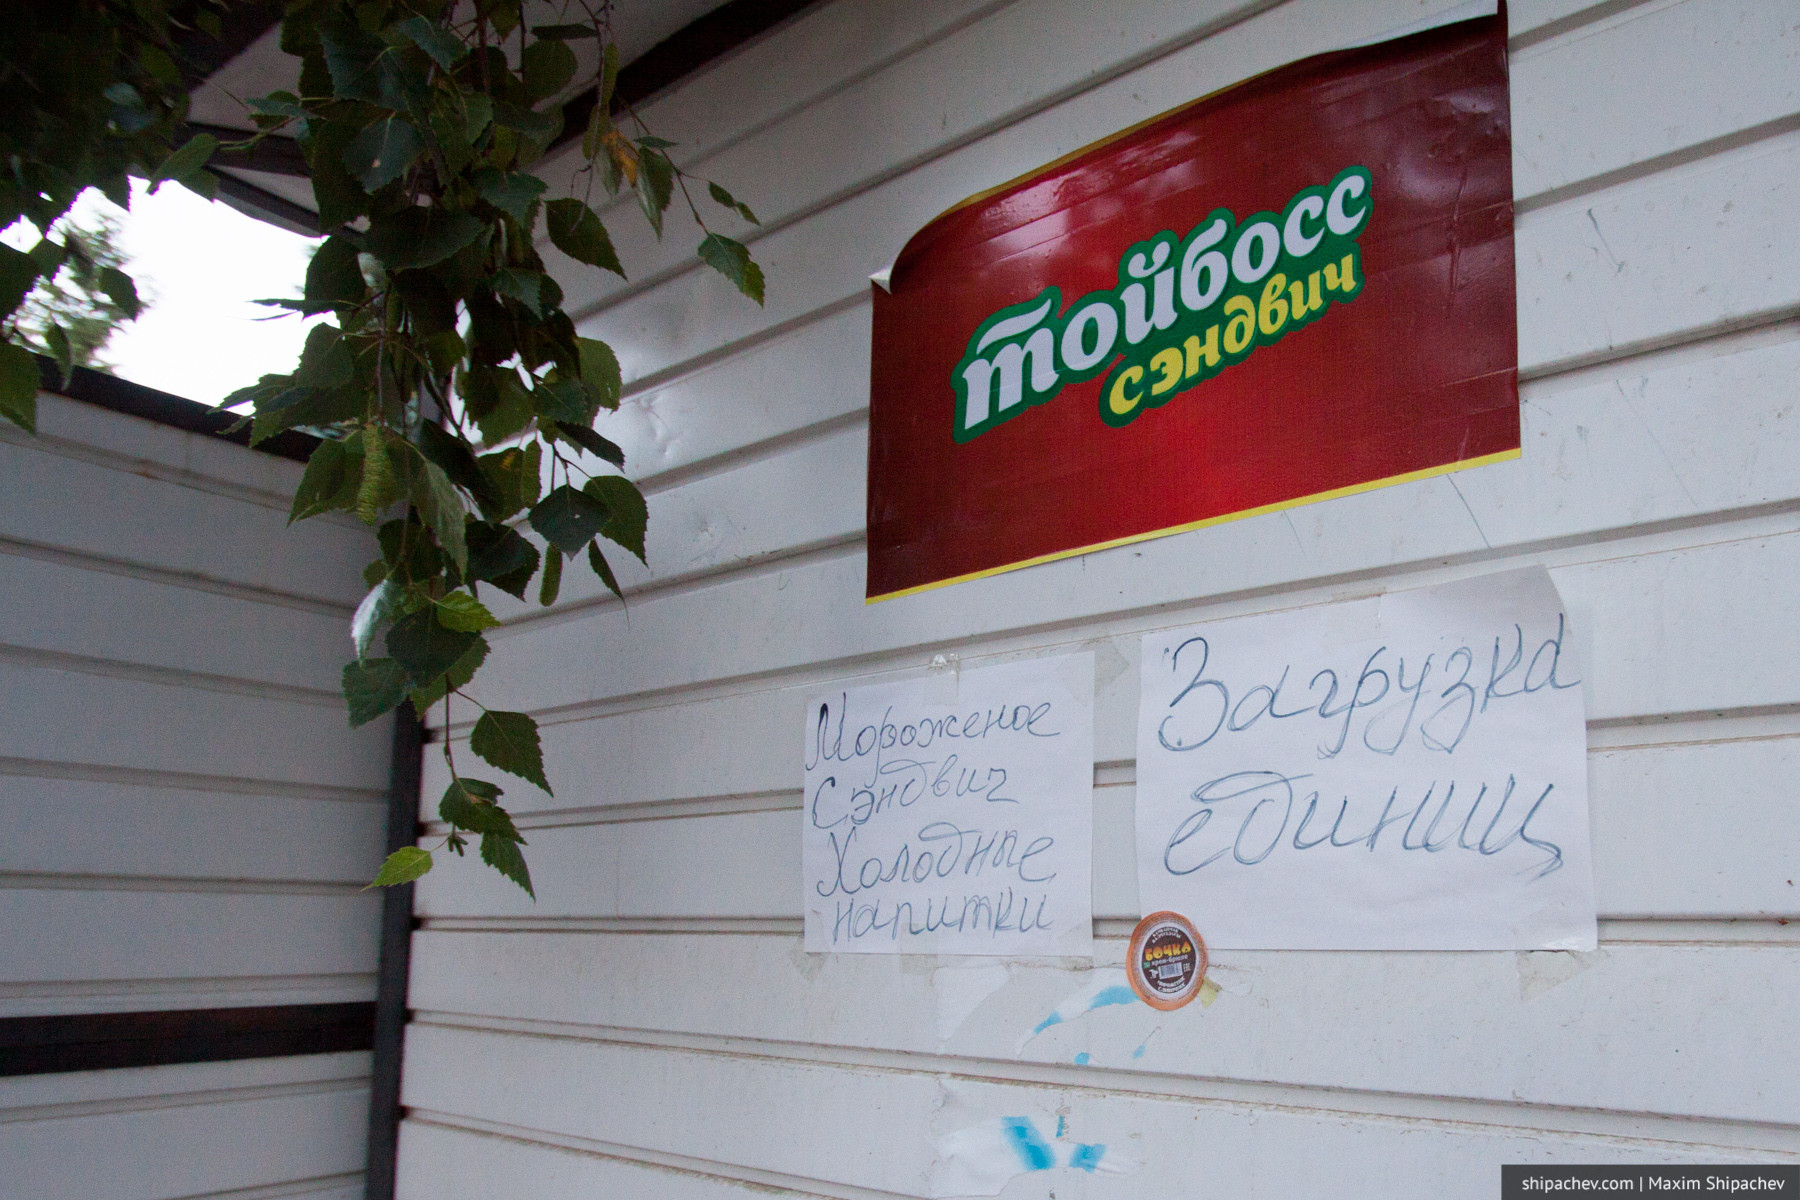 тойбосс
сэндвич
Мороженое
Сэндвич
Холодные
напитки
Загрузка
единиц
БОЧКА
крем-брюле
shipachev.com | Maxim Shipachev